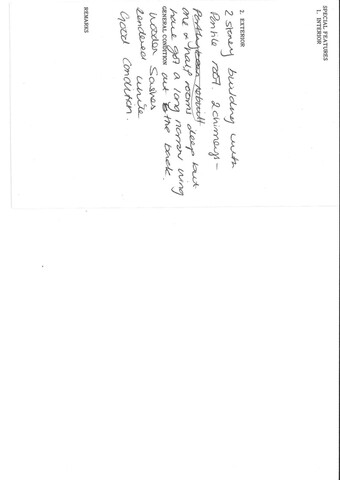 SPECIAL FEATURES
1. INTERIOR
2. EXTERIOR
2 storey building with
Pantile roof. 2 chimneys -
one & half rooms deep but
have got a long narrow wing
GENERAL CONDITION out the back.
Wooden Sashes
Rendered white
Good Condition.
REMARKS